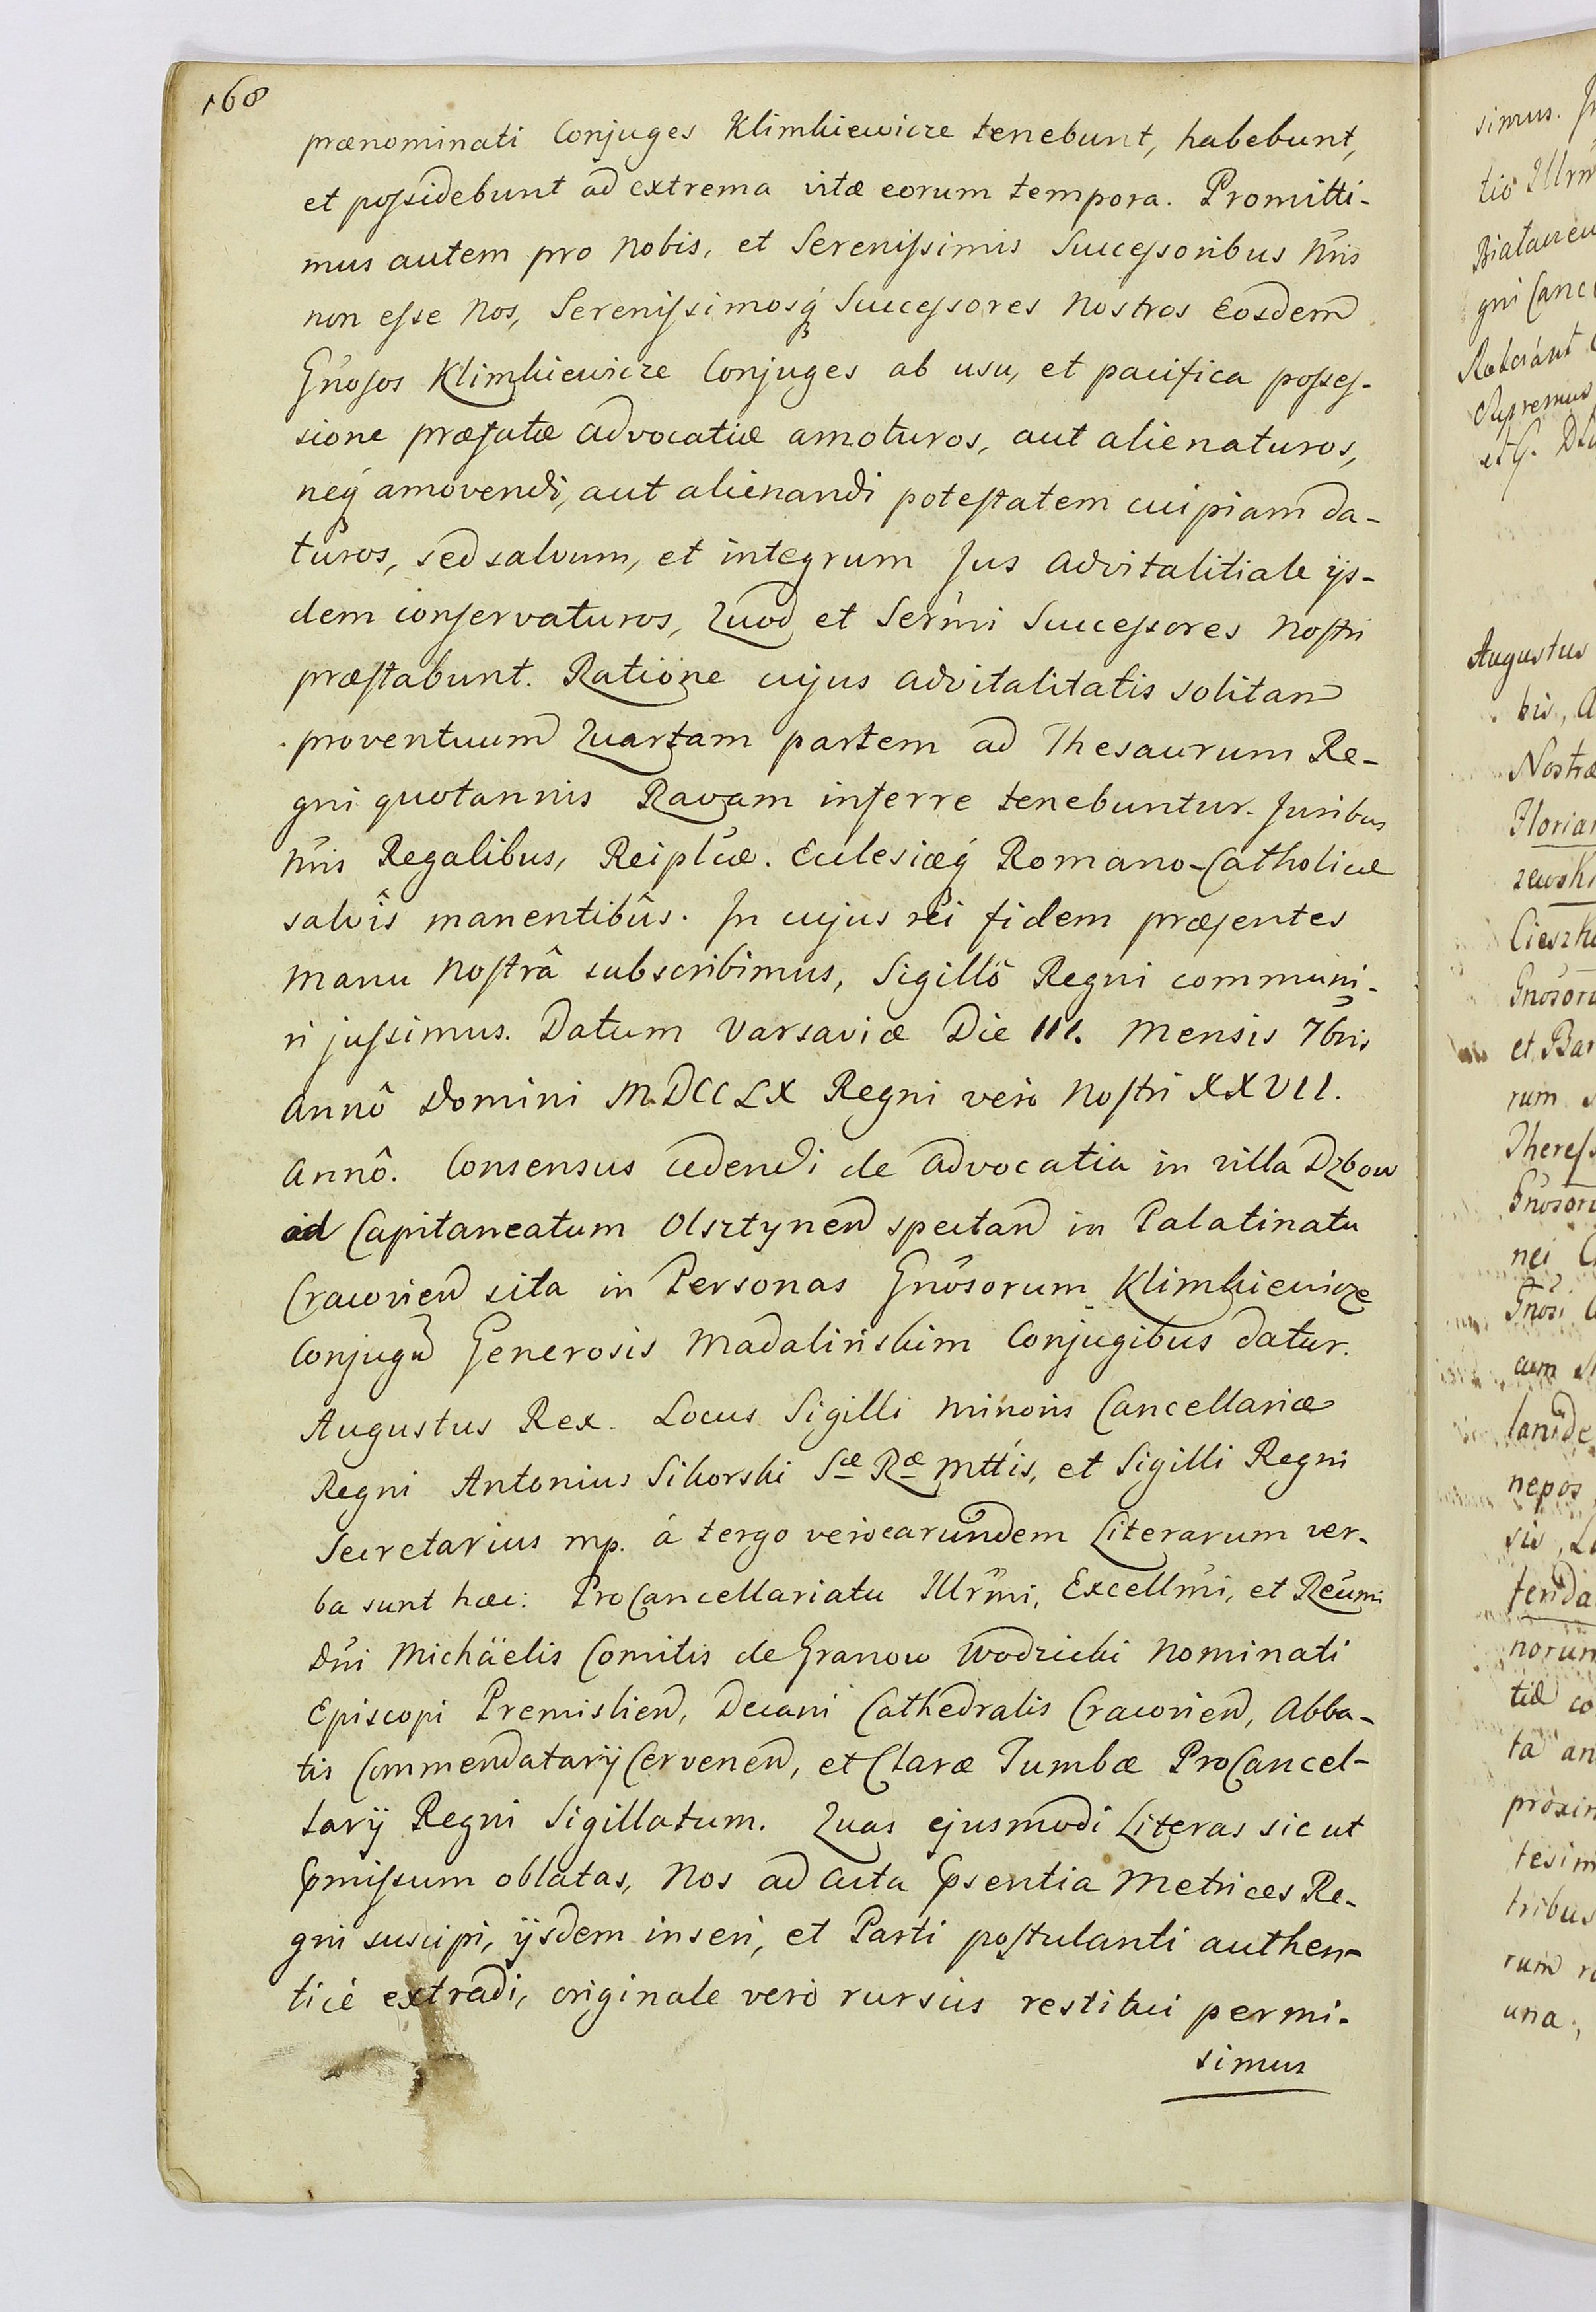 168
prænominati Conjuges Klimkiewicze tenebunt, habebunt,
et poſsidebunt ad extrema vitæ eorum tempora. Promitti-
mus autem pro Nobis, et Sereniſsimis Succeſsoribus Nr̃is
non eſse Nos, Sereniſsimosq́ Succeſsores Nostros Eosdem
Gñoſos Klimkiewicze Conjuges ab usu, et pacifica poſseſ-
sione præfatæ advocatiæ amoturos, aut alienaturos,
neq́ amovendi, aut alienandi poteſtatem cuipiam da-
turos, sed salvum, et integrum Jus advitalitiale ijs-
dem conſervaturos, Quod et Serm̃i Succeſsores Noſtri
præſtabunt. Ratione cujus advitalitatis solitam
proventuum Quartam partem ad Thesaurum Re-
gni quotannis Ravam inferre tenebuntur. Juribus
Nr̃is Regalibus, Reipl̃cæ. Ecclesiæq́ Romano-Catholicæ
salvîs manentibûs. In cujus rei fidem præſentes
Manu Noſtrâ subscribimus, Sigillô Regni communi-
ri juſsimus. Datum Varsaviæ Die III. Mensis 7bris
Annô Domini MDCCLX Regni verò Noſtri XXVII.
Annô. Consensus cedendi de Advocatia in villa Dzbow
ad Capitaneatum Olsztynen̄ spectan̄ in Palatinatu
Cracovien̄ sita in Personas Gñosorum Klimkiewicze
Conjugũ Generosis Madalińskim Conjugibus datur.
Augustus Rex. Locus Sigilli Minoris Cancellariæ
Regni Antonius Sikorski Sæ Ræ Mttis, et Sigilli Regni
Secretarius mp. á tergo verò earundem Literarum ver-
ba sunt hæc: ProCancellariatu Illr̃mi, Excellm̃i, et Reṽmi
Dñi Michäelis Comitis de Granow Wodzicki Nominati
Episcopi Premislien̄, Decani Cathedralis Cracovien̄, Abba-
tis Commendatarij Cervenen̄, et Claræ Tumbæ ProCancel-
larij Regni Sigillatum. Quas ejusmodi Literas sic ut
p̃miſsum oblatas, Nos ad Acta p̃sentia Metrices Re-
gni suscipi, ijsdem inseri, et Parti poſtulanti authen-
ticè extradi, originale verò rursus restitui permi-
simus
simus.
gni Canc
Augustus
bis, A
Nostræ
Florian
zewski
Cieszko
Gñosoru
et Bar
rum
Thereſs
Gñosoru
nei C
Gñosi
cum
nepos
sis,
norum
ta an
proxim
tesim
tribus
una,